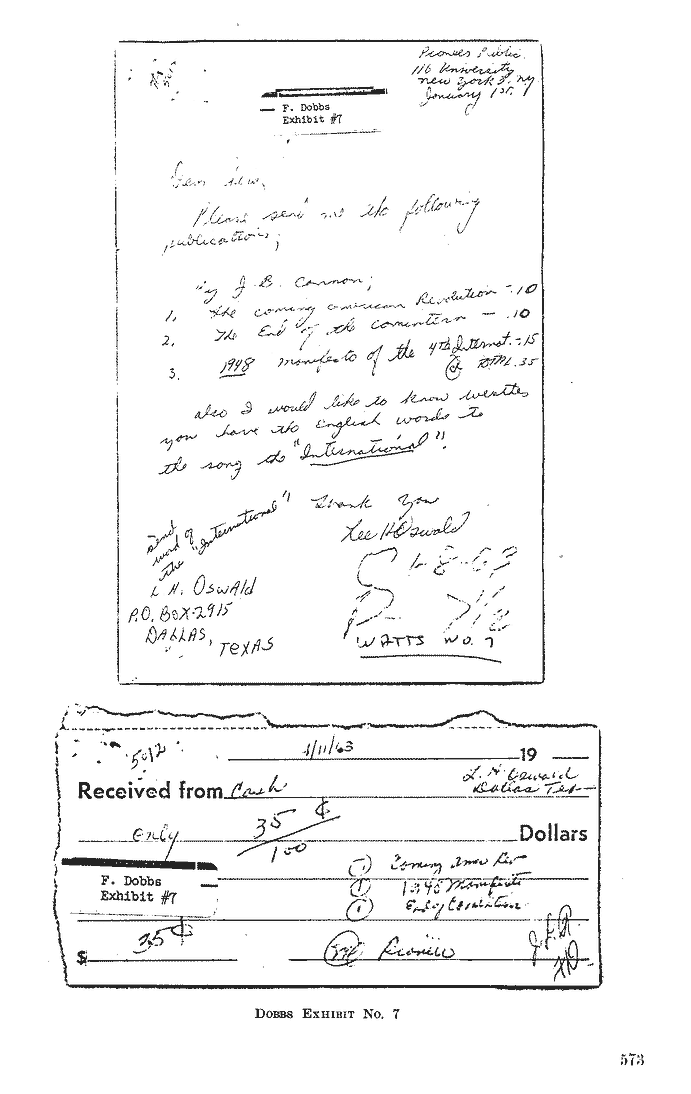 Pioneer Public.
116 University
New York 3. Ny
January 1st.
F. Dobbs
Exhibit #7
Please send me the following
publications;
By J. B. Cannon;
1. The coming american Revolution - .10
2. The End of the comintern - .10
3. 1948 manifesto of the 4th Internat. - .15
TOTAL .35
also I would like to know weather
you have the English words to
the song the "International"!
Thank you
Lee H Oswald
send
word of
the "International"!
L H. Oswald
P.O. BOX-2915
DALLAS,
TEXAS
1-8-63
WATTS NO. 7
5012
1/11/63
19
Received from Cash
L. H Oswald
Dallas Tex
only
35 ¢
100
Dollars
F. Dobbs
Exhibit #7
1 Coming Amer Rev
1 1948 Manifesto
1 End of Comintern
$ 35 ¢
Pioneer
DOBBS EXHIBIT No. 7
573